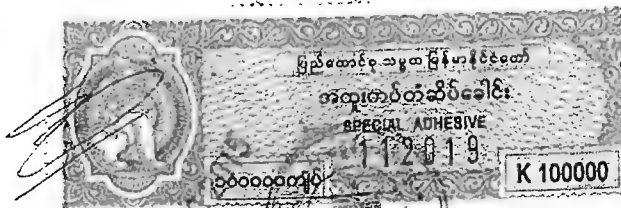 ပြည်ထောင်စု သမ္မတ မြန်မာနိုင်ငံတော်
အထူးကပ်တံဆိပ်ခေါင်း
SPECIAL ADHESIVE
112019
၁၀၀၀၀၀ကျပ်
K 100000